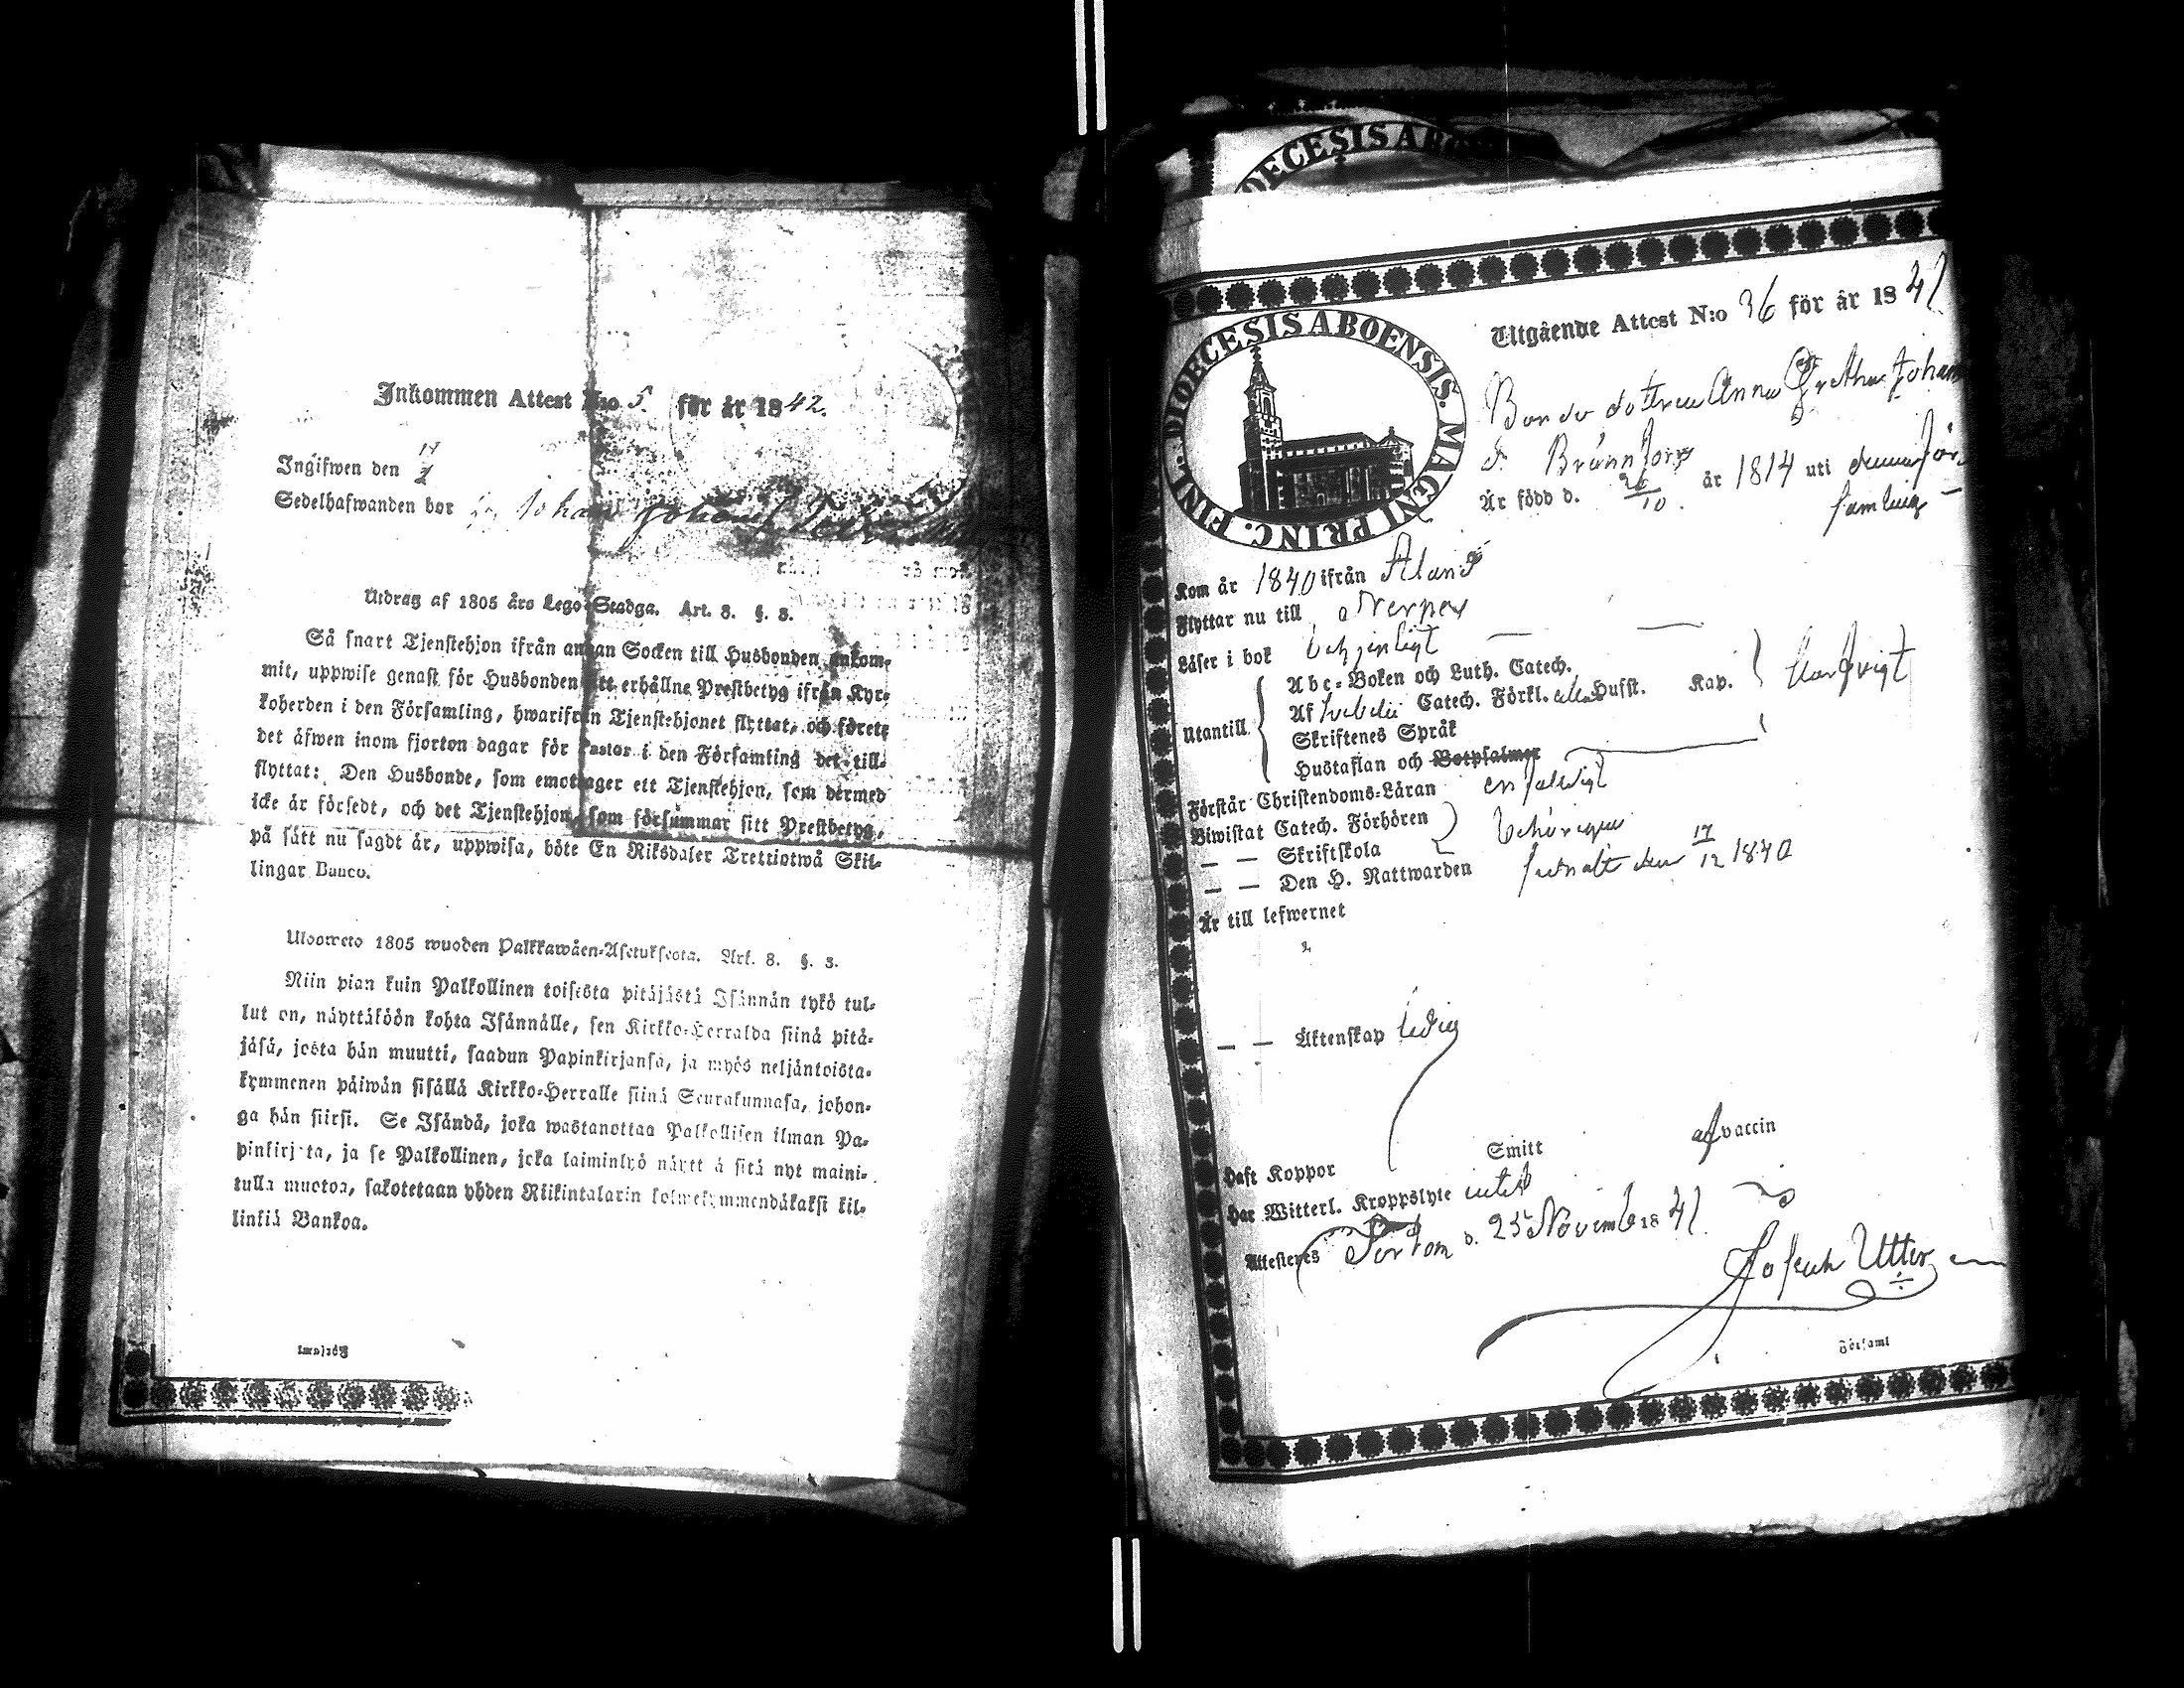 Inkommen Attest N:o 5. för år 1842.
Ingifwen den
Sedelhafwanden bor
Utdrag af 1805 års Lego-Stadga. Art. 8. §. 3.
Så snart Tjenstehjon ifrån annan Socken till Husbonden ankom-
mit, uppwise genast för Husbonden sitt erhållne Prestbetyg ifrån Kyr-
koherden i den Församling, hwarifrån Tjenstehjonet flyttat, och förete
det äfwen inom fjorton dagar för Pastor i den Församling det till-
flyttat: Den Husbonde, som emottager ett Tjenstehjon, som dermed
icke är försedt, och det Tjenstehjon, som försummar sitt Prestbetyg,
på sätt nu sagdt är, uppwisa, böte En Riksdaler Trettiotwå Skil-
lingar Banco.
Ulosweto 1805 wuoden Palkkawäen-Asetuksesta. Art. 8. §. 3.
Niin pian kuin Palkollinen toisesta pitäjästä Isännän tykö tul-
lut on, näyttäköön kohta Isännälle, sen Kirkko-Herralda siinä pitä-
jäsä, josta hän muutti, saadun Papinkirjansa, ja myös neljäntoista-
kymmenen päiwän sisällä Kirkko-Herralle siinä Seurakunnasa, johon-
ga hän siirsi. Se Isändä, joka wastanottaa Palkollisen ilman Pa-
pinkirjata, ja se Palkollinen, joka laiminlyö näyttää sitä nyt maini-
tulla muotoa, sakotetaan yhden Riikintalarin kolmekymmendäkaksi kil-
linkiä Bankoa.
DIOECESIS ABO
DIOECESIS ABOENSIS. MAGNI PRINC. FINL.
Utgående Attest N:o 36 för år 1841
Bonde dottren Anna Gretha Johan
d. Brännfors
Är född d. 26/10 år 1814 uti denna för
samling
Kom år 1840 ifrån Åland
Flyttar nu till Nerpes
Läser i bok
Utantill
Abc-Boken och Luth. Catech.
Af Catech. Förkl. Hufst. Kap.
Skriftenes Språk
Hustaflan och Botpsalmer
Förstår Christendoms-Läran enfaldigt
Biwistat Catech. Förhören
— — Skriftskola
— — Den H. Nattwarden sednast den 17/12 1840
Är till lefwernet
— — Äktenskap ledig
Haft Koppor Smitt af vaccin
Har Witterl. Kroppslyte intet
Attesteras Pörtom d. 25 Novemb 1841.
Joseph
Församl